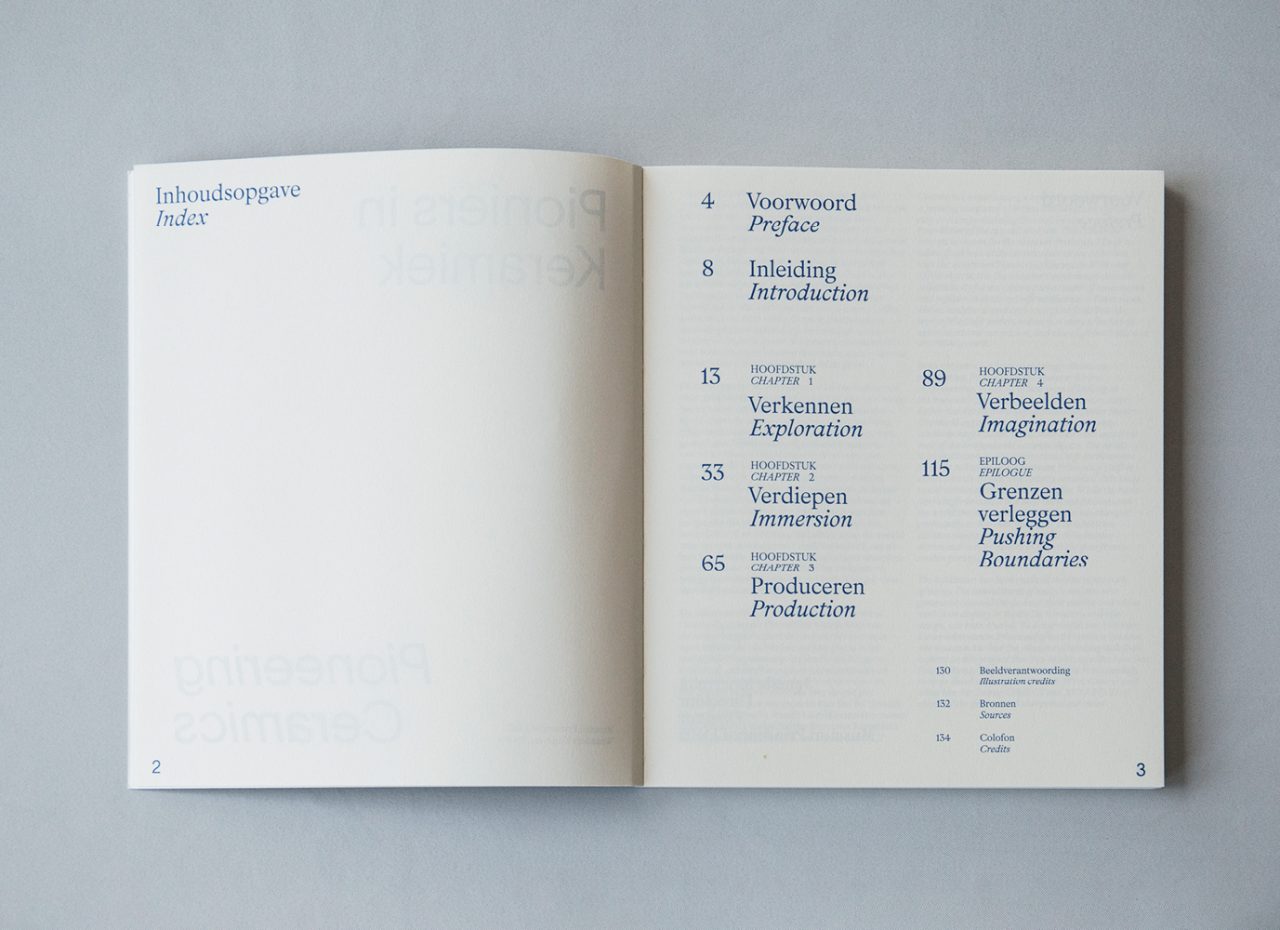 Inhoudsopgave
Index
Pioniers in
Keramiek
Pioneering
Ceramics
2
4 Voorwoord
Preface
8 Inleiding
Introduction
13 HOOFDSTUK
CHAPTER 1
Verkennen
Exploration
33 HOOFDSTUK
CHAPTER 2
Verdiepen
Immersion
65 HOOFDSTUK
CHAPTER 3
Produceren
Production
89 HOOFDSTUK
CHAPTER 4
Verbeelden
Imagination
115 EPILOOG
EPILOGUE
Grenzen
verleggen
Pushing
Boundaries
130 Beeldverantwoording
Illustration credits
132 Bronnen
Sources
134 Colofon
Credits
3